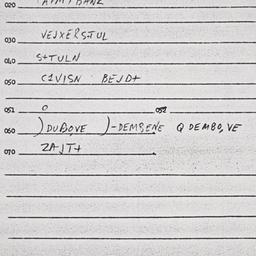 020
030 VEJXERSTUL
040 S+TULN
050 C1VISN BEJD+
051 O 052
060 )DUBOVE )-DEMBENE Q DEMBO,VE
070 ZAJT+